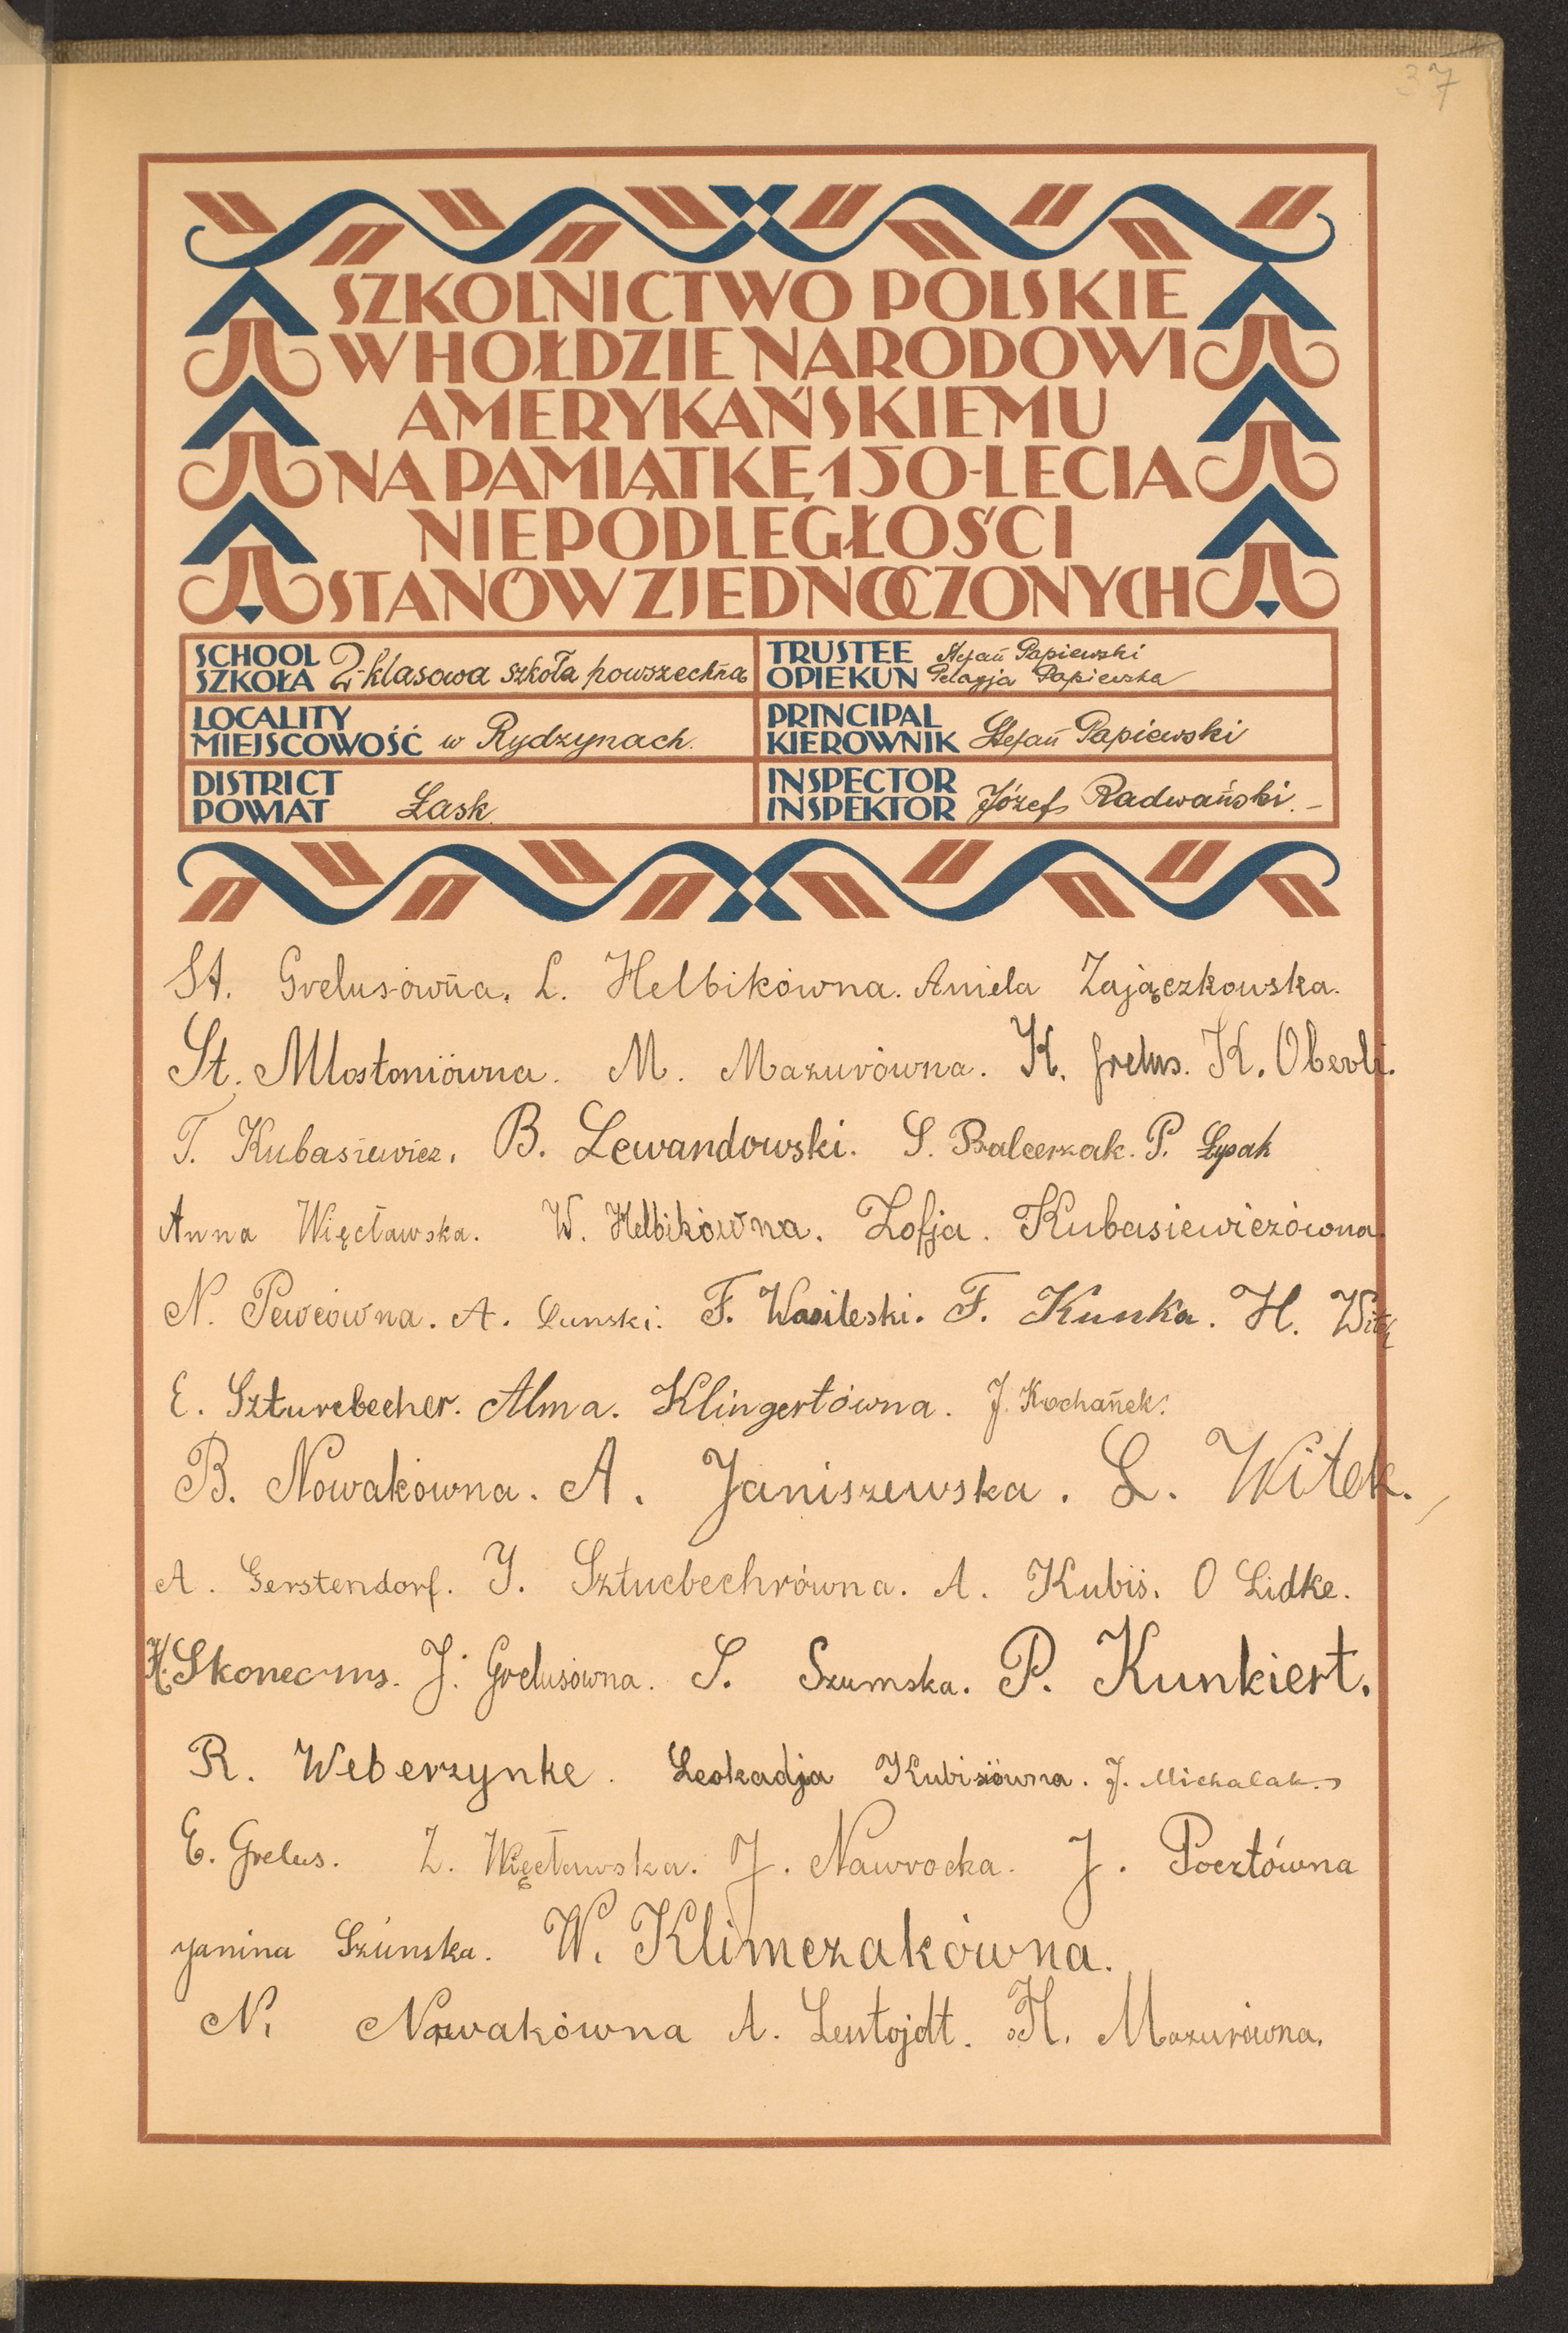 37
SZKOLNICTWO POLSKIE
W HOŁDZIE NARODOWI
AMERYKAŃSKIEMU
NA PAMIĄTKĘ 150-LECIA
NIEPODLEGŁOŚCI
STANÓW ZJEDNOCZONYCH
SCHOOL
SZKOŁA 2-klasowa szkoła powszechna
TRUSTEE Stefan Papiewski
OPIEKUN Pelagja Papiewska
LOCALITY
MIEJSCOWOŚĆ w Rydzynach.
PRINCIPAL
KIEROWNIK Stefan Papiewski
DISTRICT
POWIAT Łask.
INSPECTOR
INSPEKTOR Józef Radwański. –
St. Grelusówna. L. Helbikówna. Aniela Zajączkowska.
St. Mlostoniówna. M. Mazurówna. K. Grelus. K. Oberli.
T. Kubasiewicz. B. Lewandowski. S. Balcerzak. P. Łysak
Anna Więcławska. W. Helbikówna. Zofja. Kubasiewiczówna.
N. Pewcówna. A. Dunski. F. Wasileski. F. Kunka. H. Witek
E. Szturcbecher. Alma. Klingertówna. J. Kochanek.
B. Nowakówna. A. Janiszewska. L. Witek.
A. Gerstendorf. J. Sztucbechrówna. A. Kubiś. O Lidke.
K. J. Grelusówna. S. Szumska. P. Kunkiert.
R. Weberzynke. Leokadja Kubisiówna. J. Michalak.
E. Grelus. Z. Więcławska. J. Nawrocka. J. Pocztówna
Janina Szúnska. W. Klimczakówna.
N. Nowakówna A. Lustojdt. H. Mazurówna.